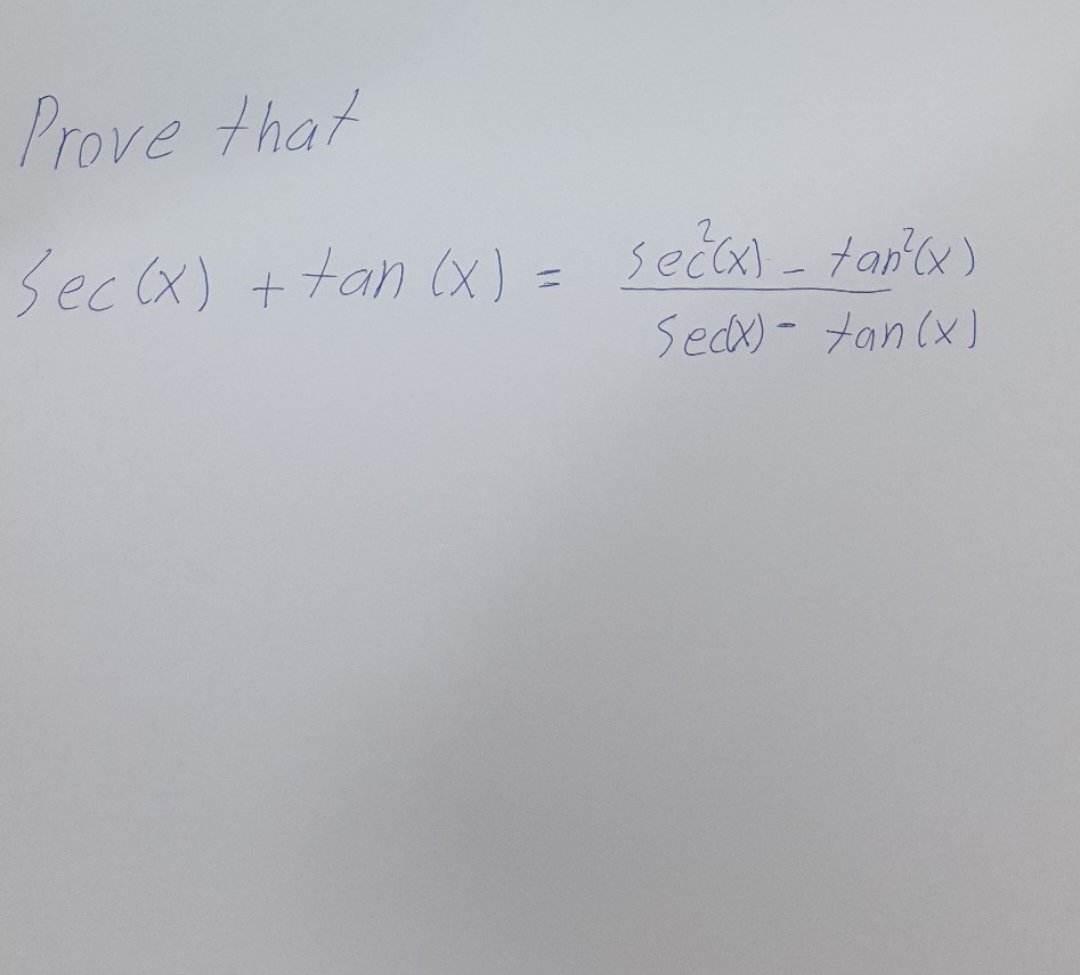 Prove that
sec(x) + tan(x) = sec²(x) - tan²(x) / sec(x) - tan(x)